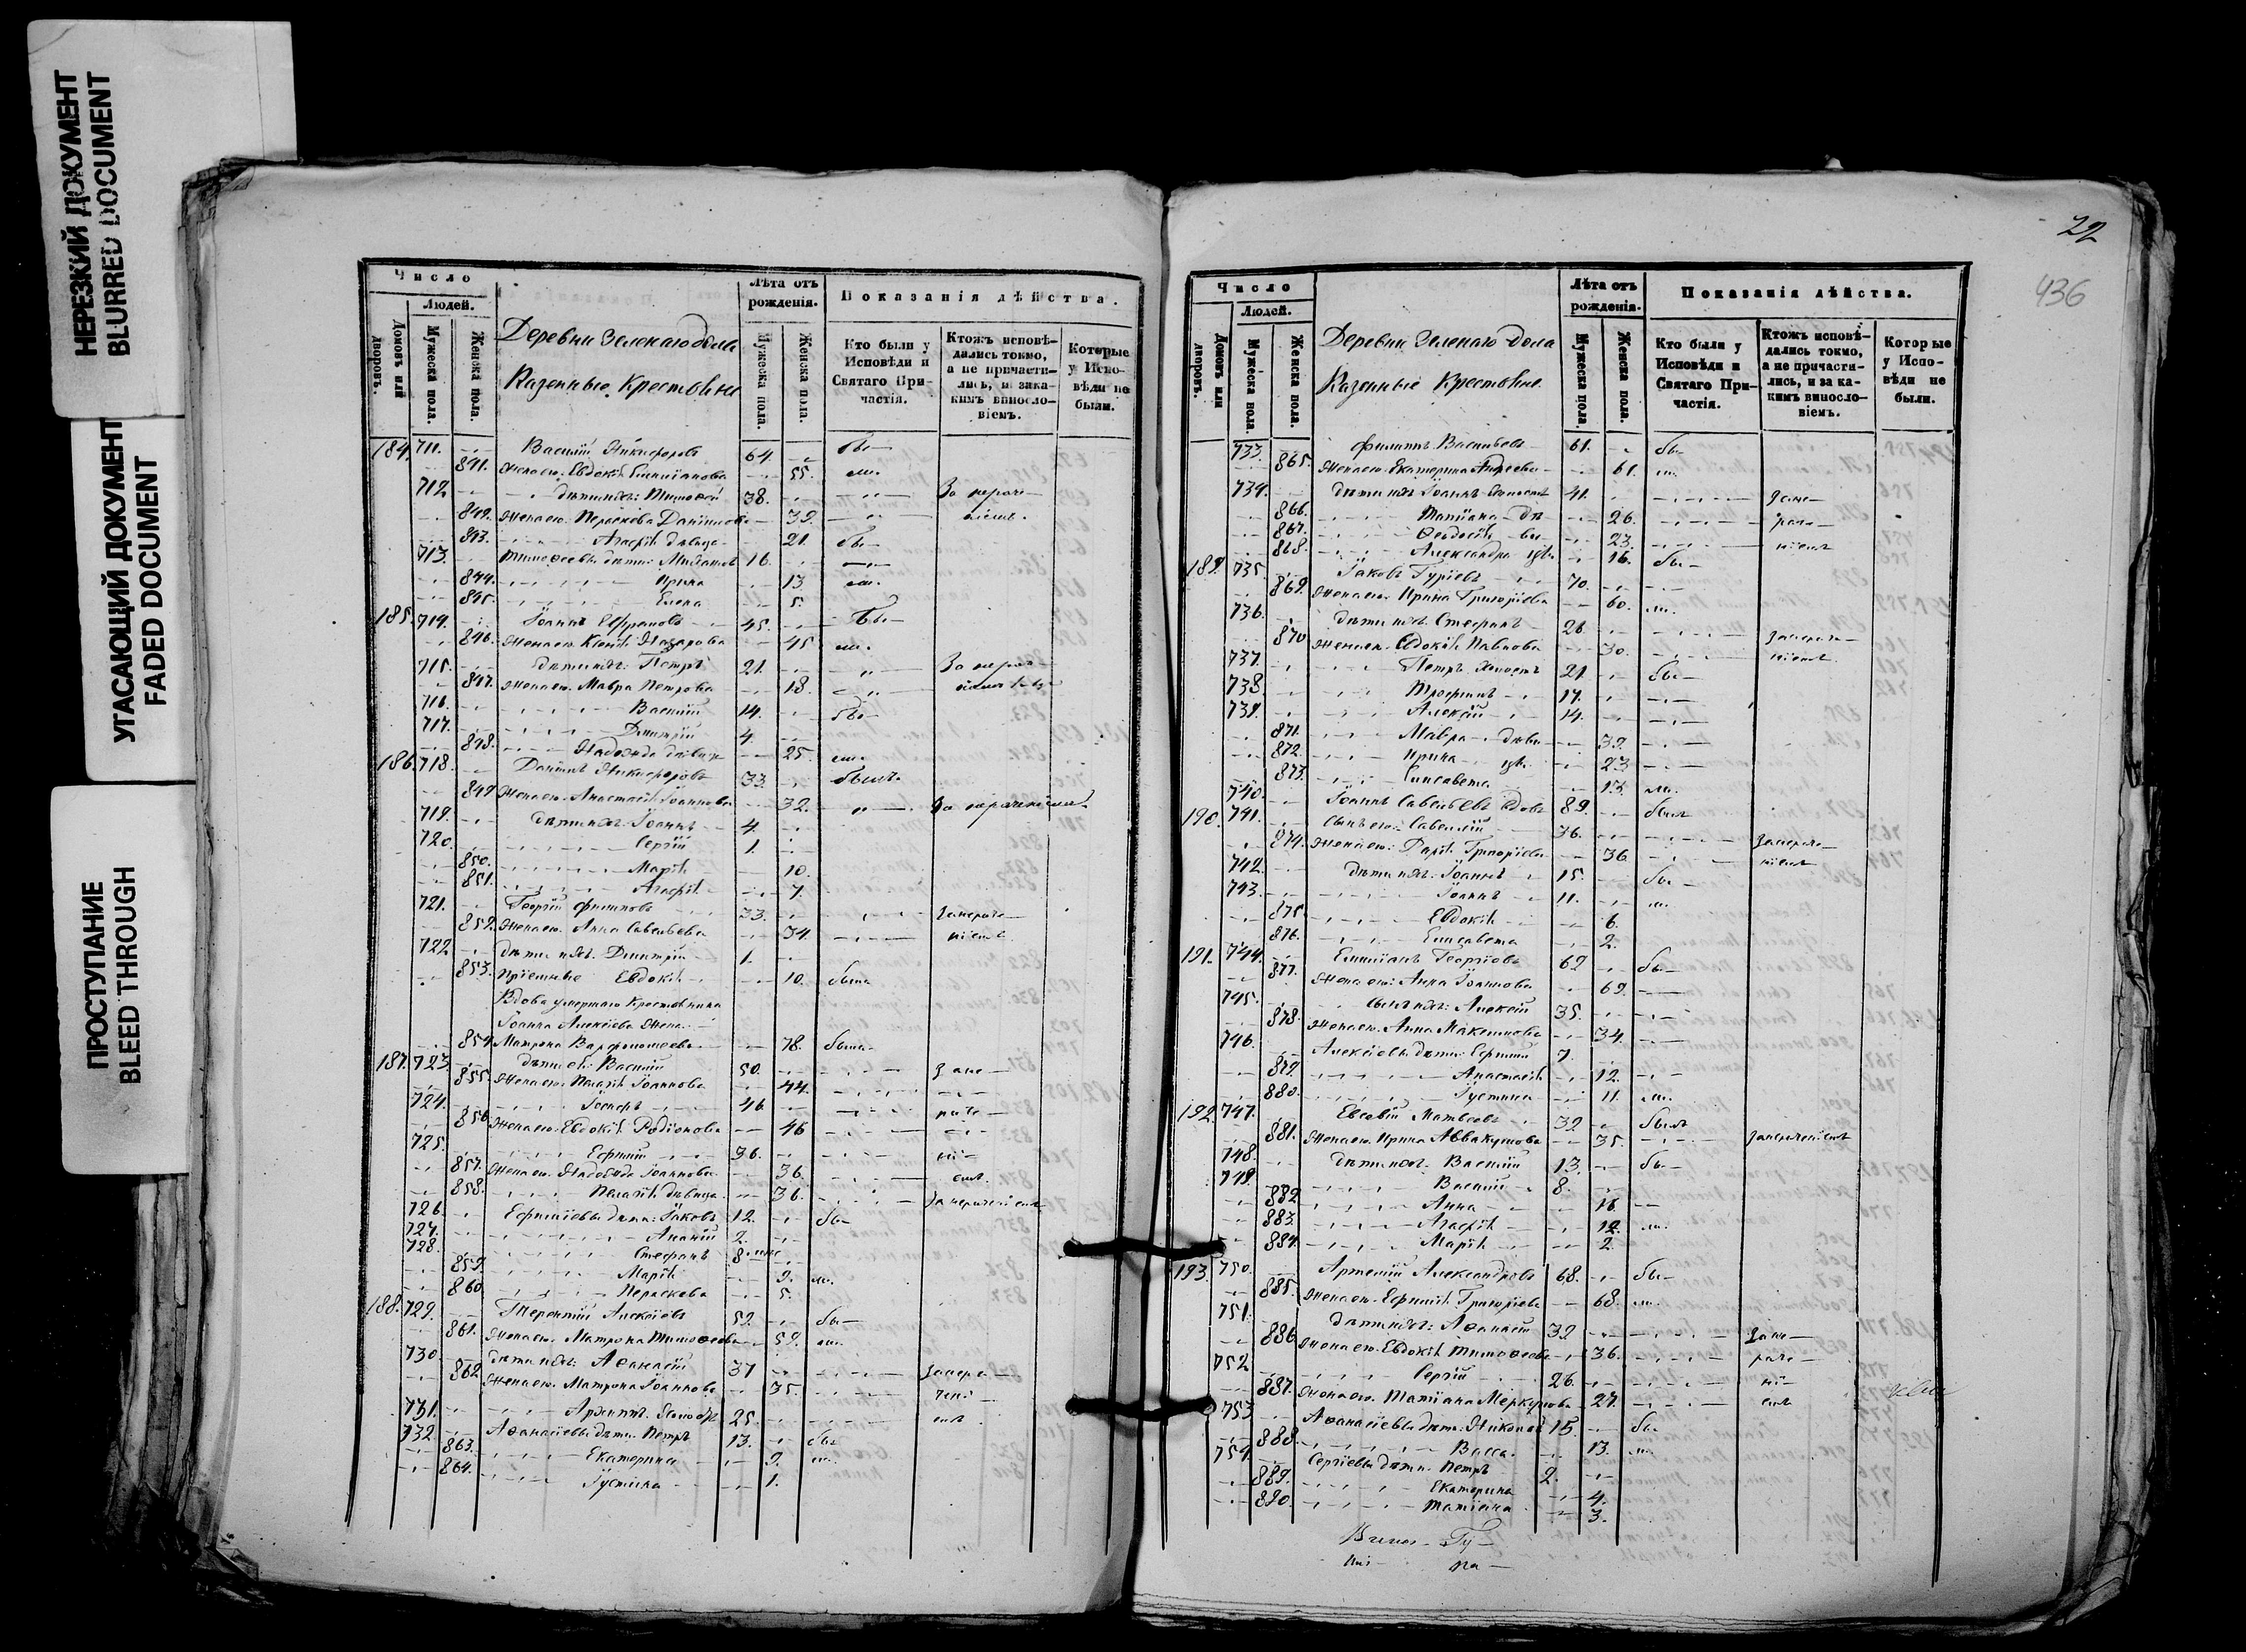 НЕРЕЗКИЙ ДОКУМЕНТ
BLURRED DOCUMENT
УГАСАЮЩИЙ ДОКУМЕНТ
FADED DOCUMENT
ПРОСТУПАНИЕ
BLEED THROUGH
Число
Людей.
Домовъ или дворовъ.
Мужеска пола.
Женска пола.
Деревни Зеленаго дола
Казенные Крестьяне
Лѣта отъ рожденія.
Мужеска пола.
Женска пола.
Показанія дѣйства.
Кто были у Исповѣди и Святаго Причастія.
Ктожъ исповѣдались токмо, а не причастились, и за какимъ винословіемъ.
Которые у Исповѣди не были.
184. 711. Василій Никифоровъ 64 бы
841. Жена его Евдокія Емилианова 55. ли.
712 дѣти ихъ: Тимоѳей 38. За нераче
842. Жена его Параскева Даніилова 39. ніемъ.
843. Агафія дѣвица 21. бы
713. Тимоѳеевы дѣти: 16.
844. Ирина 13 ли.
845. Елена 5.
185. 714. Іоаннъ 45. Бы
846. Жена его Ксенія Назарова 45 ли.
715. дѣти ихъ: Петръ 21. За нерач
847. Жена его Мавра Петрова 18.
716. Василій 14. бы
717. Димитрій 4.
848. Надежда дѣвица 25. ли.
186. 718. Никифоровъ 33. былъ
849 Жена его Анастасія Іоаннова 32. За нераченіемъ
719. дѣти ихъ: Іоаннъ 4.
720. Сергій 1.
850. Марія 10.
851. Агафія 7.
721. Георгій Филиповъ 33. Занераче
852. Жена его Анна Савельева 34. ніемъ.
722 дѣти ихъ: Димитрій 1.
853. Евдокія 10. была
Вдова умершаго Крестьянина
Іоанна Алексіева Жена
854 Матрона Варфоломеева 78. была
187. 723. дѣти ея: Василій 50. За не
855. Жена его Пелагія Іоаннова 44.
724. Іосифъ 46. раче
856. Жена его Евдокія Родіонова 46
725. Ефимій 36. ні
857. Жена его Надежда Іоаннова 36. емъ.
858. Пелагія дѣвица 36. За нераченіемъ
726. Ефиміевы дѣти: Іаковъ 12. бы
727. Ананій 2.
728. Стефанъ 8 мис
859. Марія 9. ли.
860. Параскева 5.
188. 729. Терентій Алексіевъ 59. бы
861. Жена его Матрона Тимоѳеева 59. ли.
730. дѣти ихъ: Аѳанасій 37 Занера
862 Жена его Матрона Іоаннова 35. чені
731. 25. емъ
732. Аѳанасіевы дѣти Петръ 13. бы
863. Екатерина 9. ли.
864. Іустина 1.
22
436
Число
Людей.
Домовъ или дворовъ.
Мужеска пола.
Женска пола.
Деревни Зеленаго Дола
Казенные Крестьяне
Лѣта отъ рожденія.
Мужеска пола.
Женска пола.
Показанія дѣйства.
Кто были у Исповѣди и Святаго Причастія.
Ктожъ исповѣдались токмо, а не причастились, и за какимъ винословіемъ.
Которые у Исповѣди не были.
733. Филиппъ Васильевъ 61. бы
865. Жена его Екатерина Андреева 61. ли.
734. дѣти ихъ Іоаннъ холостъ 41. За не
866. Татіана дѣ 26. раче
867. Ѳеодосія ви 23. ніемъ
868. Александра цы 16. бы
189. 735. Іаковъ Гуріевъ 70.
869. Жена его Ирина Григоріева 60. ли.
736. дѣти ихъ Стефанъ 26 Занераче
870 Жена его Евдокія Павлова 30. ніемъ.
737. Петръ холостъ 21 бы
738. Трофимъ 17.
739. Алексій 14.
871. Мавра дѣви 39.
872. Ирина цы 23
873. Елисавета 13. ли.
740. Іоаннъ Савельевъ вдовъ 89. былъ
190. 741. Сынъ его: Савелій 36.
874. Жена его: Дарія Григоріева 36 Занераче
742. дѣти ихъ: Іоаннъ 15. бы ніемъ
743. Іоаннъ 11. ли
875. Евдокія 6.
876. Елисавета 2.
191. 744. Емиліанъ Георгіевъ 69 бы
877. Жена его: Анна Іоаннова 69.
745. Сынъ ихъ: Алексій 35.
878. Жена его: Анна Максимова 34.
746. Алексіевы дѣти: Ефимій 7.
879. Анастасія 12.
880. Іустина 11. ли.
192. 747. Евсевій Матвеевъ 39 былъ
881. Жена его Ирина Аввакумова 35. Занераченіемъ
748. дѣти ихъ: Василій 13. бы
749. Василій 8.
882 Анна 16
883. Агафія 12. ли.
884. Марія 2
193. 750. Артемій Александровъ 68. бы
885. Жена его Ефимія Григоріева 68. ли.
751. дѣти ихъ: Аѳанасій 39 За не
886 Жена его Евдокія Тимоѳеева 36. раче
752 Сергій 26. ні
887. Жена его Татіана Меркурова 27. емъ
753 Аѳанасіевы дѣти: Николай 15. бы
888. Васса 13. ли.
754. Сергіевы дѣти Петръ 2.
889. Екатерина 4.
890. Татіана 3.